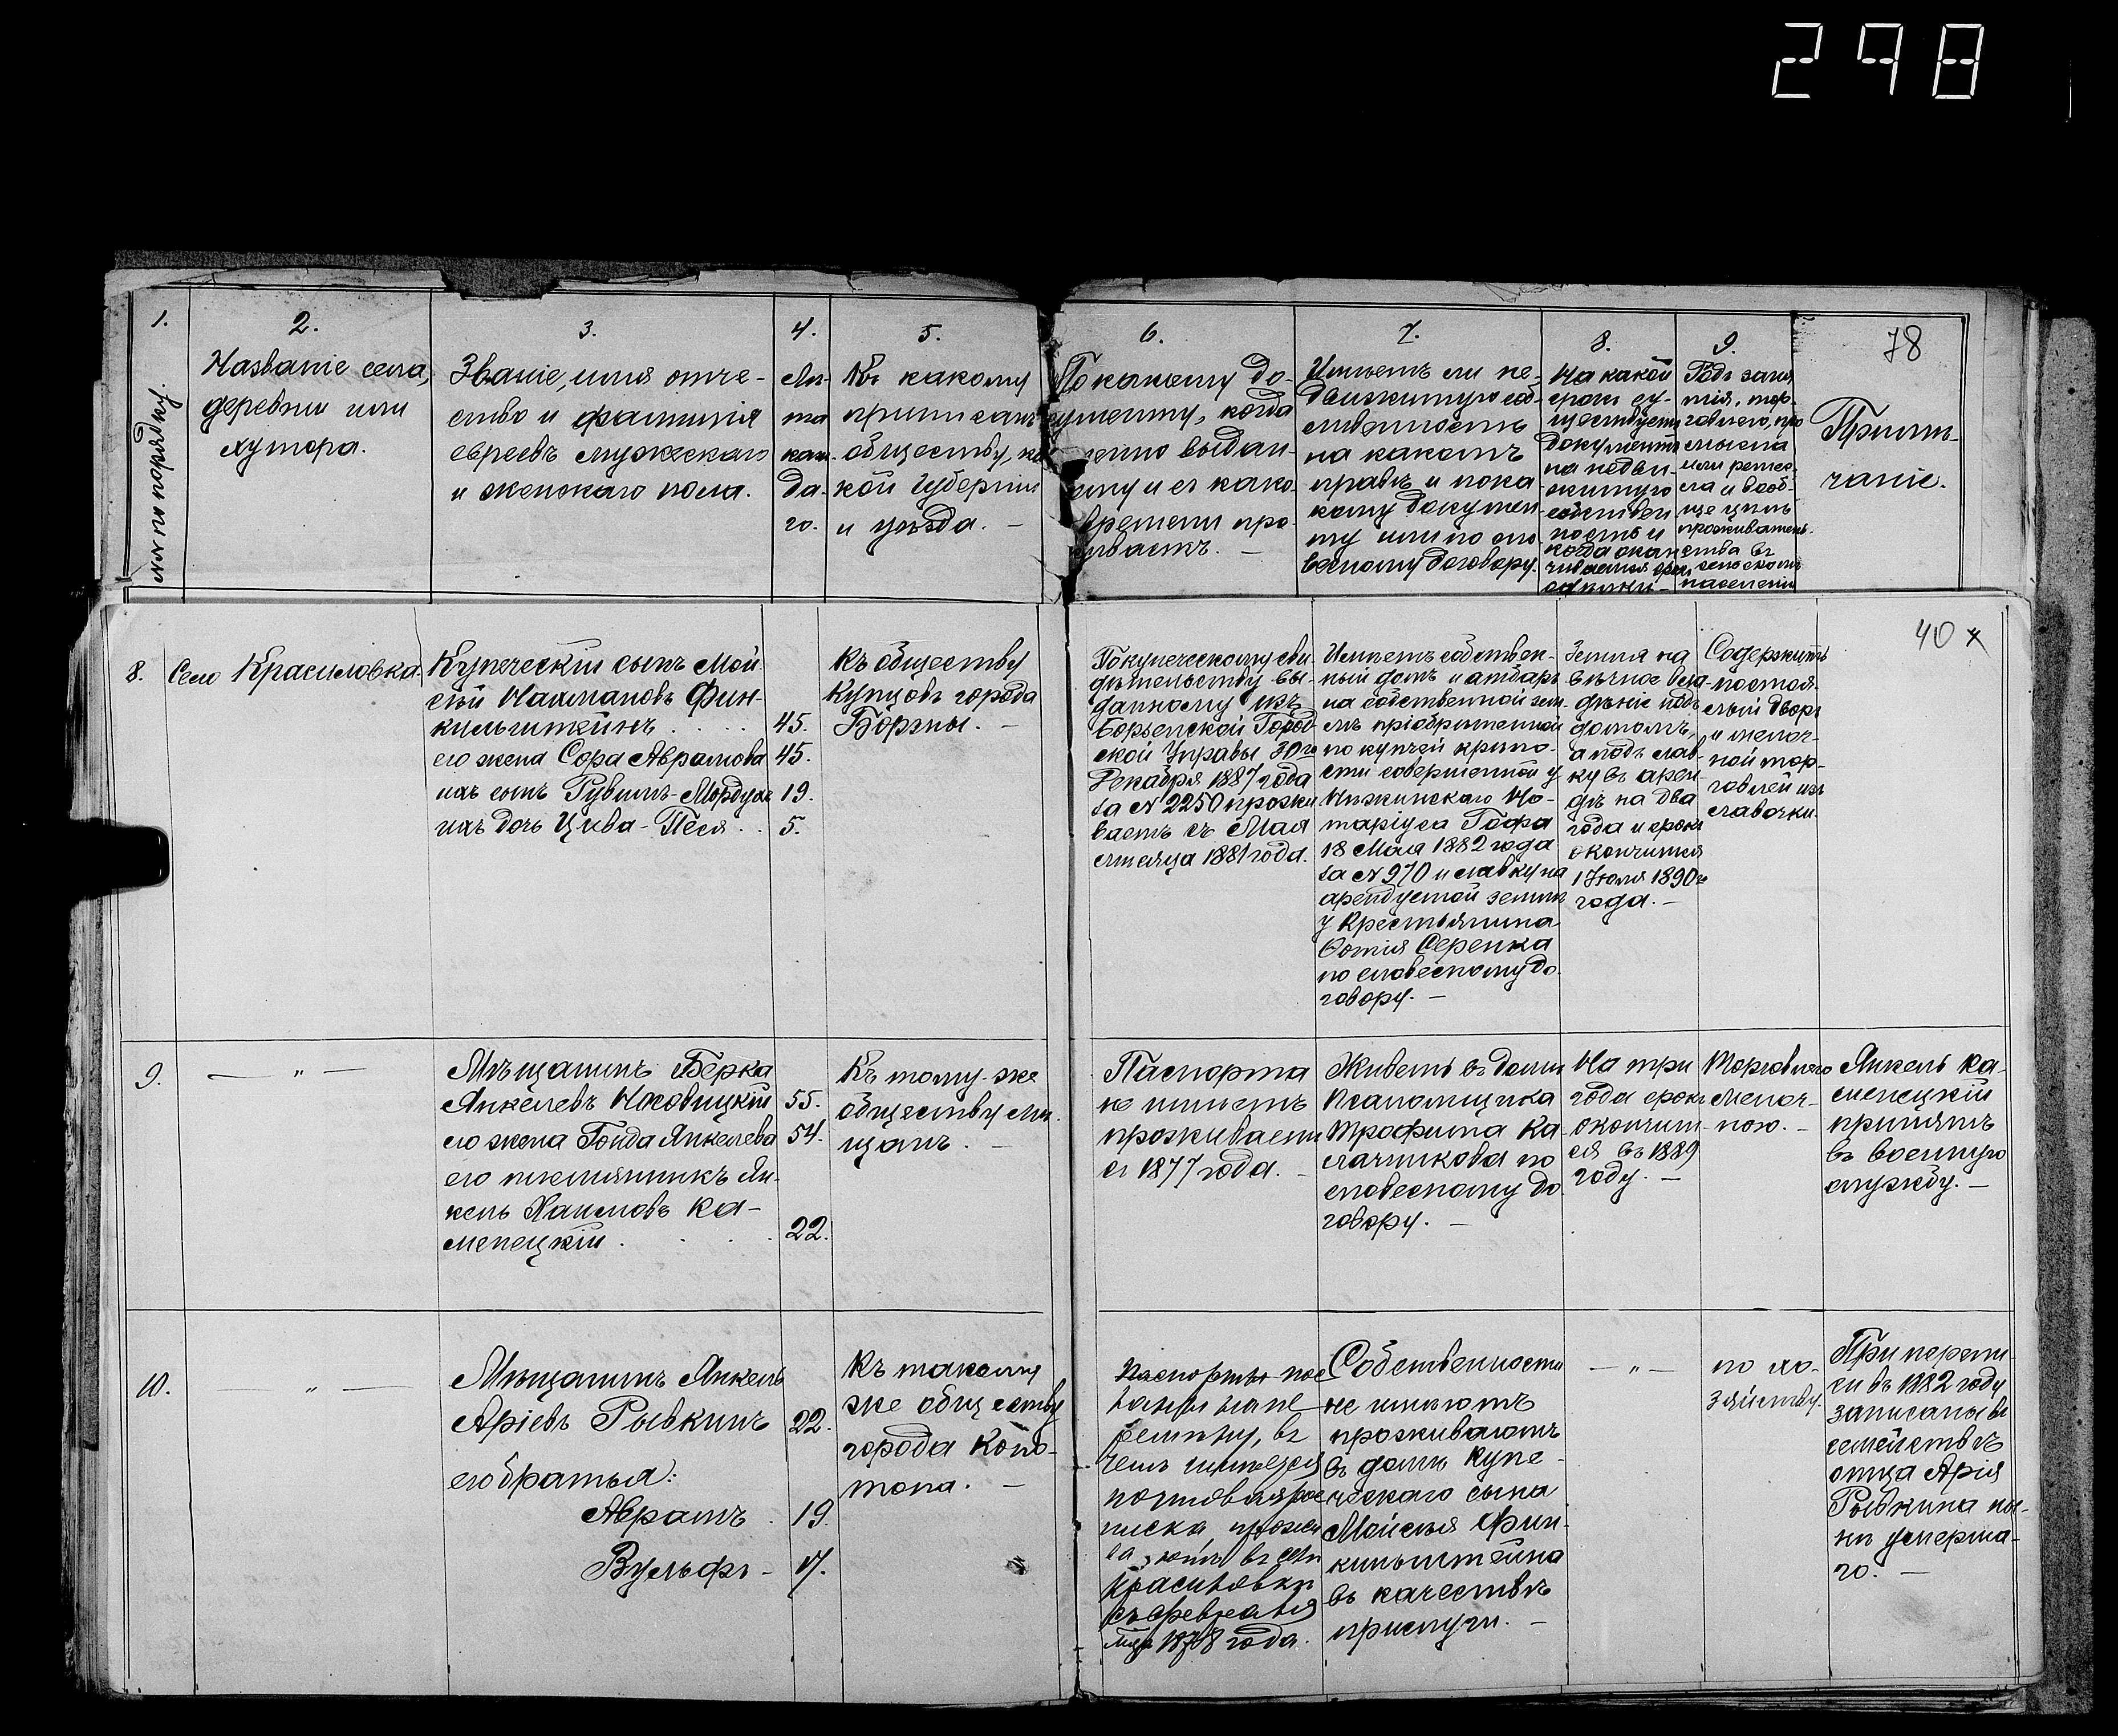 298
1.
№№ по порядку.
2.
Названіе села,
деревни или
хутора.
3.
Званіе, имя отче-
ство и фамилія
евреевъ мужскаго
и женскаго пола.
4.
Лѣ-
та
каж-
да-
го.
5.
Къ какому
приписанъ
обществу, ка
кой губерніи
и уѣзда. —
6.
По какому до-
кументу, когда
выдан-
ному и съ како-
времени про-
живаетъ. —
7.
Имѣетъ ли не-
движимую соб-
ственность
на какомъ
правѣ и по ка
кому докумен
ту или по сло-
весному договору.
8.
На какой
срокъ су-
ществуетъ
документъ
на недви-
жимую
собствен
ность и
когда окан
чивается срокъ
аренды. —
9.
Родъ заня
тія, тор-
говлею, про
мысла
или ремес-
ла и вооб-
ще цѣль
проживатель-
ства въ
сельскомъ
населеніи
78
Примѣ-
чаніе.
40
8.
Село Красиловка.
Купеческій сынъ Мой
сѣй Нахмановъ Фин-
кильштейнъ . . . .
45.
его жена Сора Аврамова
45.
ихъ сынъ Рувимъ-Мордухъ
19.
ихъ дочь Цива-Песя . .
5.
Къ обществу
купцовъ города
Борзны. —
По купеческому сви-
дѣтельству вы-
данному изъ
Борзенской Город-
ской Управы 30го
Декабря 1887 года
за № 2250 прожи
ваетъ съ Мая
мѣсяца 1881 года.
Имѣетъ собствен-
ный домъ и амбаръ
на собственной зем-
лѣ пріобрѣтенной
по купчей крѣпо-
сти совершенной у
Нѣжинскаго Но-
таріуса Гофа
18 Мая 1882 года
за № 970 и лавку на
арендуемой землѣ
у Крестьянина
Ѳотія Серепка
по словесному до-
говору. —
Земля на
вѣчное вла-
дѣніе подъ
домомъ,
а подъ лав-
ку въ арен-
дѣ на два
года и срокъ
окончится
1 Іюля 1890го
года. —
Содержитъ
постоя-
лый дворъ
и мелоч-
ной тор-
говлей изъ
лавочки.
9.
— " —
Мѣщанинъ Берка
Янкелевъ Носовицкій
55.
его жена Гонда Янкелева
54.
его племянникъ Ян-
кель Хаимовъ Ка-
менецкій . . . .
22.
Къ тому-же
обществу мѣ-
щанъ. —
Паспорта
не имѣетъ
проживаетъ
съ 1877 года. —
Живетъ въ домѣ
Псаломщика
Трофима Ка-
лачникова по
словесному до-
говору. —
На три
года срокъ
окончит-
ся въ 1889
году. —
Торговлею
мелоч-
ною. —
Янкель Ка-
менецкій
принятъ
въ военную
службу. —
10.
— " —
Мѣщанинъ Янкель
Аріевъ Рывкинъ
22.
его братья:
Аврамъ .
19.
Вульфъ -
17.
Къ такому
же обществу
города Коно-
топа. —
Паспорты пос
ланы на пе
ремѣну, въ
чемъ имѣется
почтовая рос
писка, прожи
ваютъ въ селѣ
Красиловкѣ
съ февраля
мѣс. 1878 года.
Собственности
не имѣютъ
проживаютъ
въ домѣ купе-
ческаго сына
Мойсѣя Фин-
кильштейна
въ качествѣ
прислуги. —
— " —
по хо-
зяйству.
При перепи-
си въ 1882 году
записаны въ
семействѣ
отца Арія
Рывкина ны-
нѣ умерша-
го. —